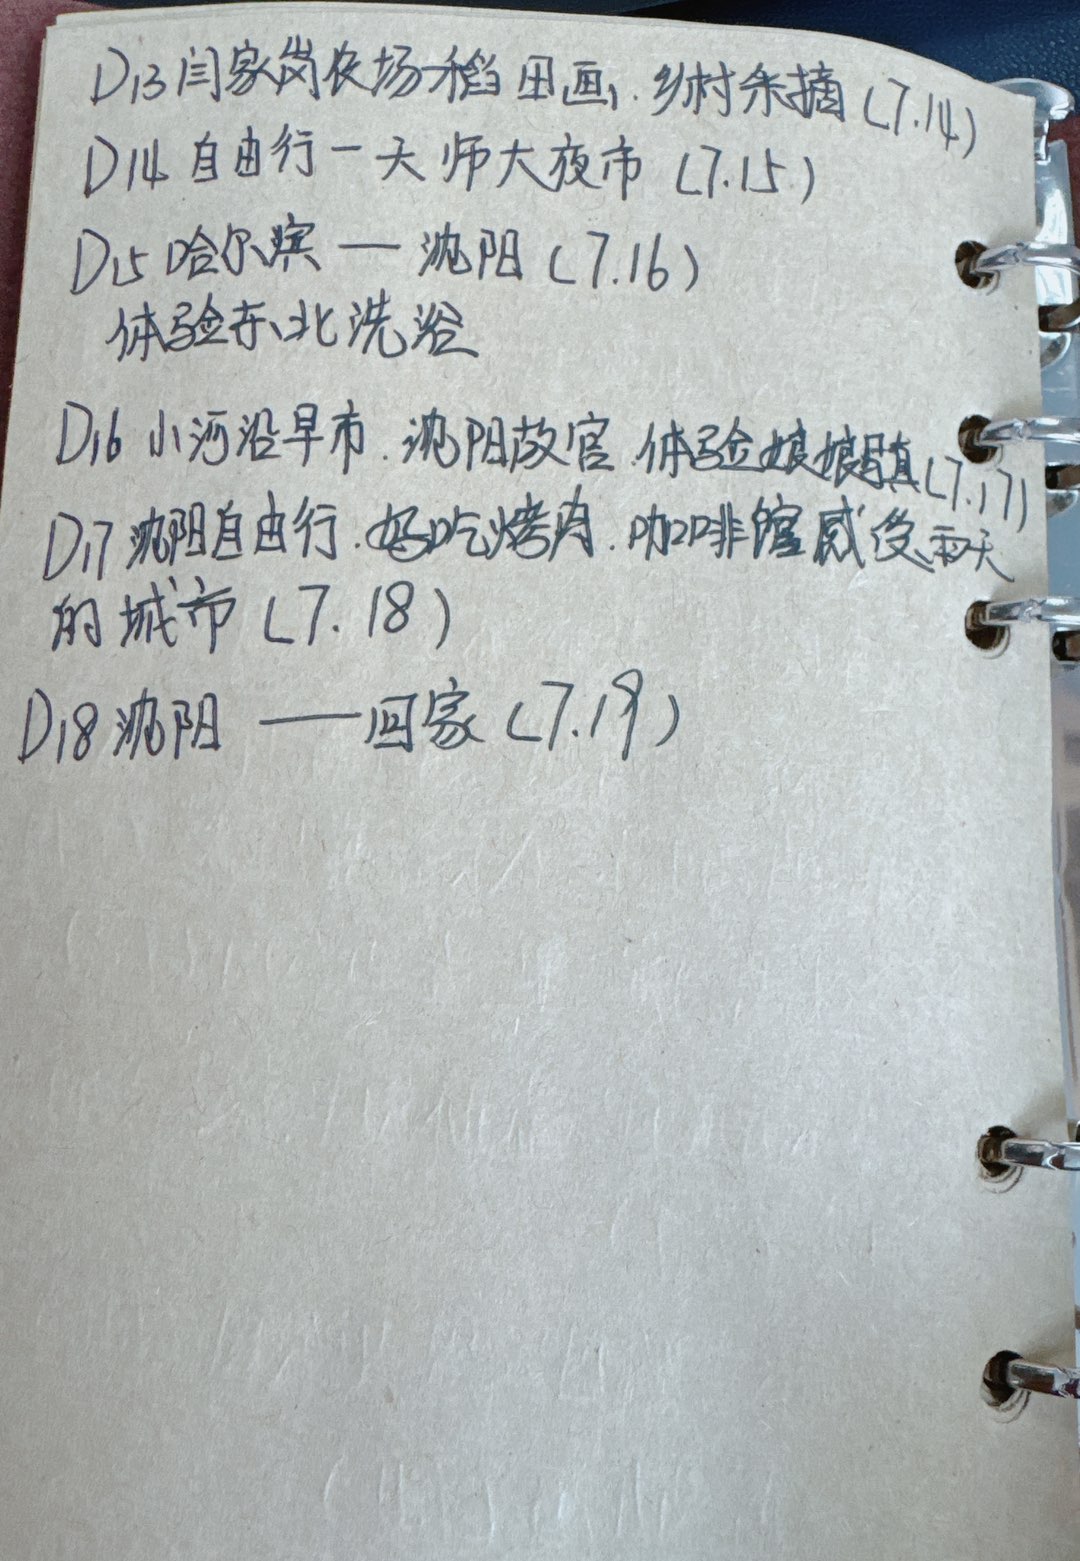 D13 闫家岗农场稻田画，乡村采摘(7.14)
D14 自由行一天 师大夜市 (7.15)
D15 哈尔滨 — 沈阳 (7.16)
体验东北洗浴
D16 小河沿早市.沈阳故宫.体验娘娘 (7.17)
D17 沈阳自由行.好吃烤肉.咖啡馆感受雨天
的城市 (7.18)
D18 沈阳 —— 回家 (7.19)